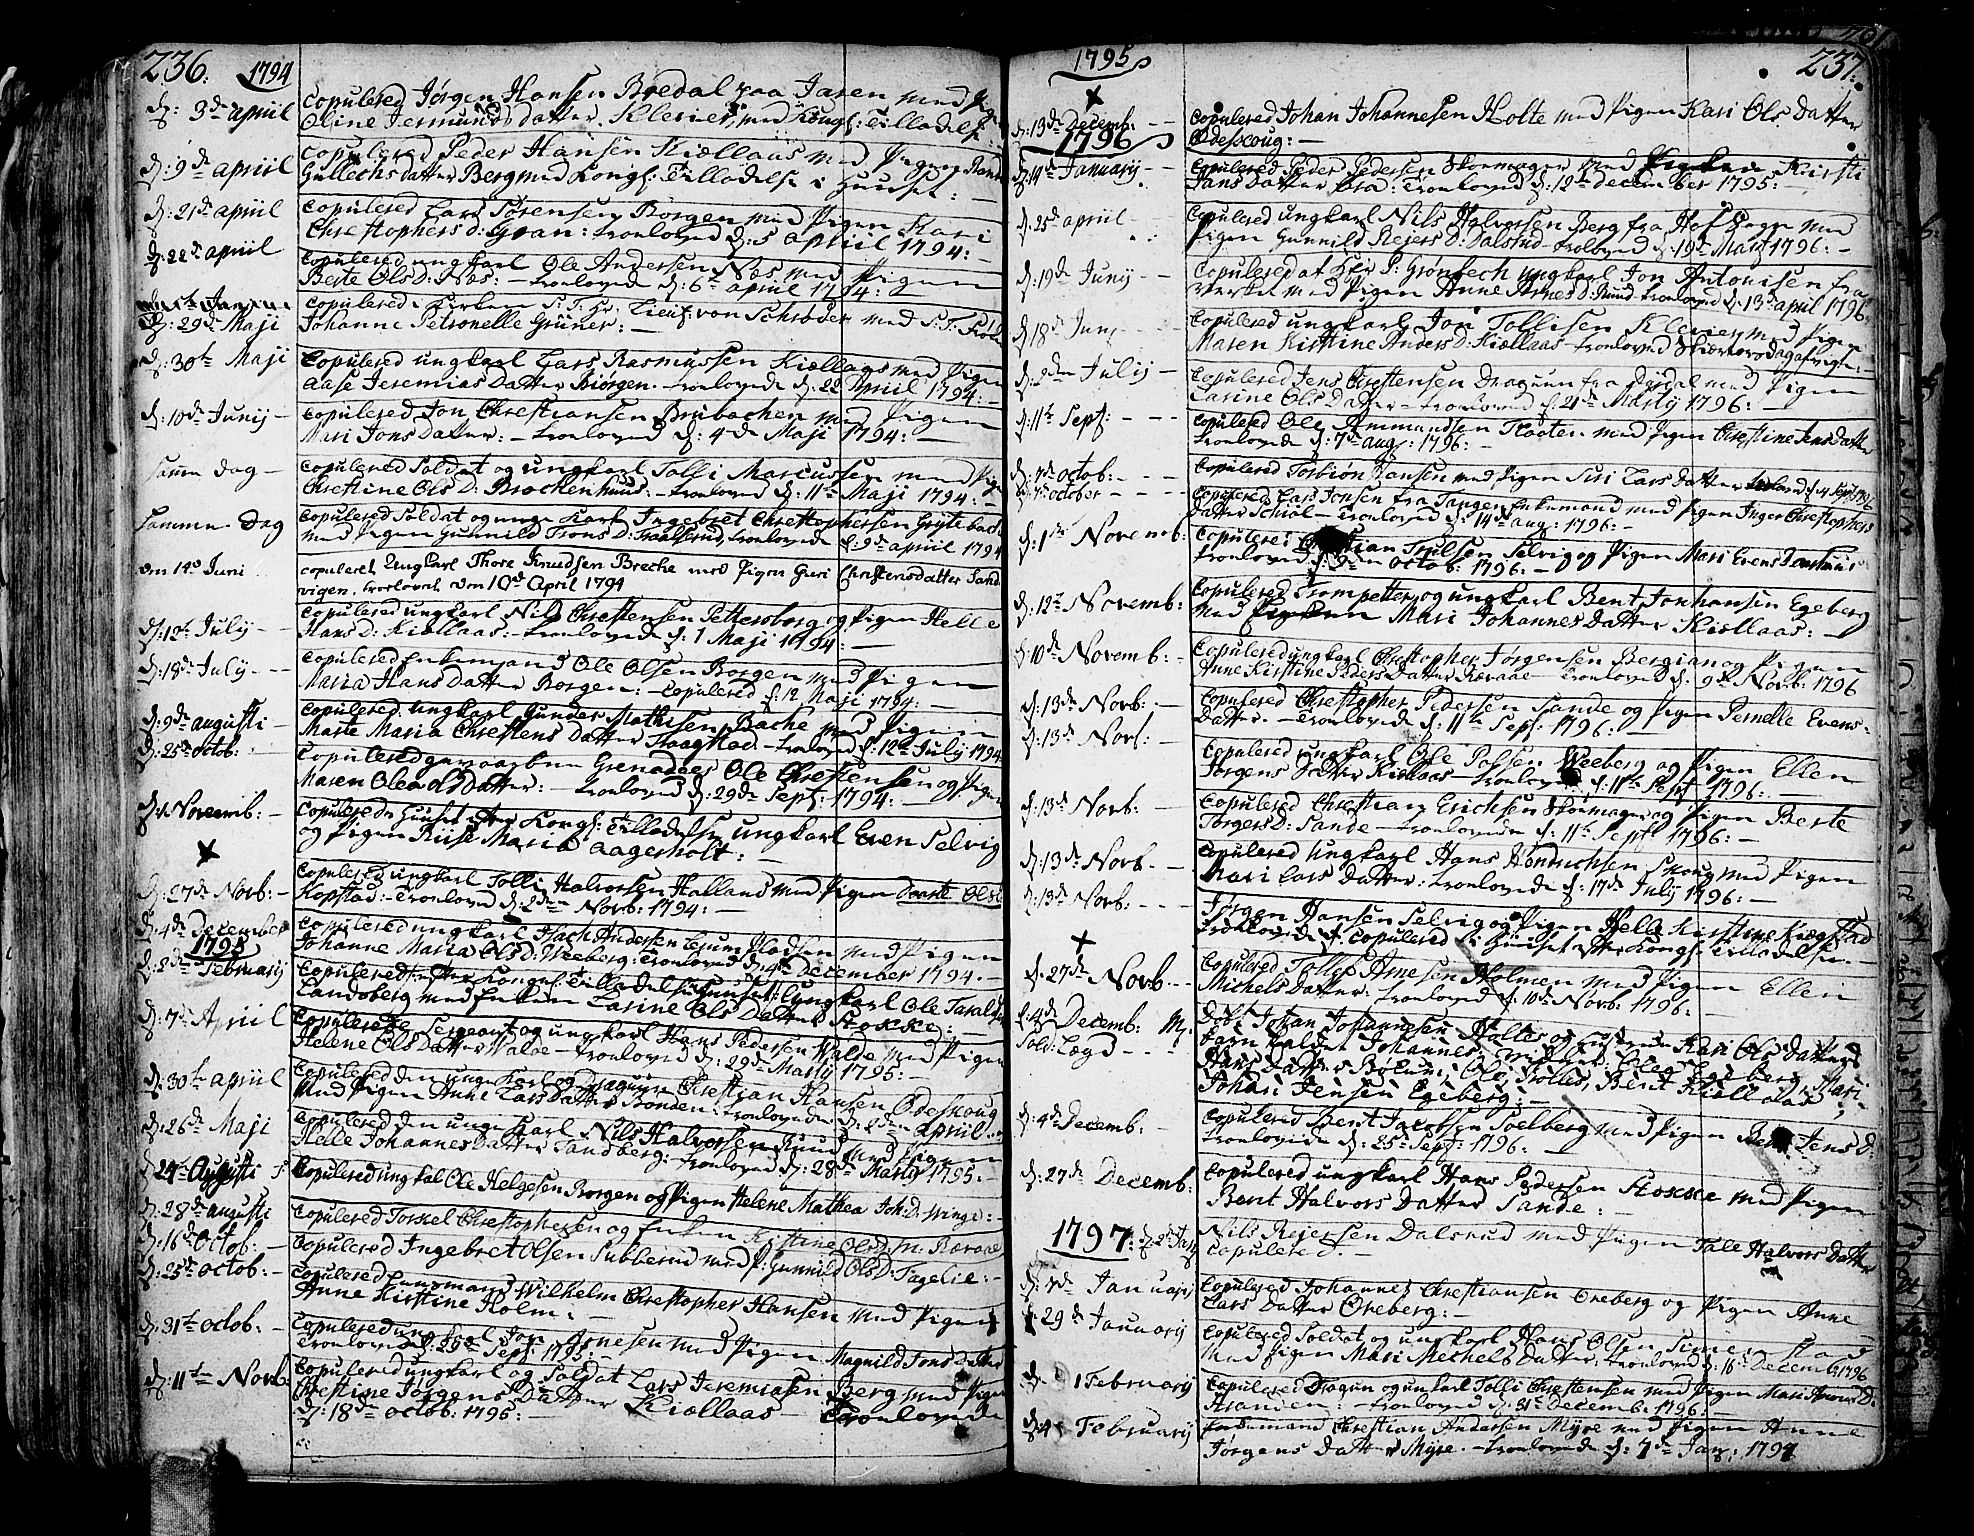 236: 1794
d: 3de apriil Copulered Jørgen Hansen Bredal paa Jaren med Pigen
Oline Jermunds datter Klever, med Kongl: Tilladelse
d: 9de apriil Copulered Peder Hansen Kiøllaas med Pigen Randi
Gullechs datter Berg med Kongl: Tilladelse i Huuset: —
d: 21de apriil Copulered Lars Sørensen Borgen med Pigen Kari
Chrestophers d: Gran: troeloved d: 5 apriil 1794: —
d: 22de apriil Copulered ungkarl Ole Andersen Næs med Pigen
Berte Ols D: Næs: — troeloved d: 6te april 1794: —
d: 29de Maji Copulered i Kirken S: T: Hr: Lieut: von Schrøder med S: T: Frøken
Johanne Petronelle Grüner: —
d: 30te Maji Copulered ungkarl Lars Rasmussen Kiøllaas med Pigen
Aase Jeremias Datter Biørgen. troeloved d: 22 Apriil 1794: —
d: 10de Junij — Copulered Jon Chrestiansen Brubachen med Pigen
Mari Jons Datter: — troeloved d: 4de Maji 1794: —
samme dag — Copulered Soldat og ungkarl Tolli Marcussen med Pigen
Chrestine Ols D: Brochenhuus: — troeloved d: 11te Maji 1794: —
sammen Dag Copulered Soldat og unge Karl Ingebret Chrestophersen Grytebach
med Pigen Gunnild Trons D: troelovede d: 9de april 1794
den 14de Juni copuleret Ungkarl Thore Knudsen Breche med Pigen Guri Christensdatter Sand
vigen. troelovet den 10de April 1794
d: 12te July — Copulered ungkarl Nils Chrestensen Pettersborg og Pigen Helle
Hans D: Kiøllaas: troelovede d: 1 Maji 1794: —
d: 18de July — Copulered Enkemand Ole Olsen Borgen med Pigen
Maria Hans Datter Borgen: — copulered d: 12 Maji 1794: —
d: 9de augusti — Copulered ungkarl Gunder Mathisen Bache med Pigen
Marte Maria Chrestens Datter Haagstad — troelovede d: 12te July 1794
d: 25de octob: Copulered gevorben Grenadeer Ole Chrestensen og Pigen
Maren Olena Olsdatter: — troeloved d: 29de Sept: 1794: —
Novemb: — Copulered i Huuset efter Kongl: Tilladelse ungkarl Even Selvig
og Pigen Riise Maria Aagerholt: —
d: 27de Novb: — Copulered ungkarl Tolli Halvorsen Halland med Pigen Dorte Ols d
Kopstad: — troeloved d: 2den Novb: 1794: —
d: 4de December Copulered ungkarl Isach Andersen med Pigen
Johanne Maria Ols D: Weeberg: troeloved d: 4de December 1794: —
1795
d: 2den Februarij Copulered efter Kongel: Tilladelse i Huuset: ungkarl Ole Taralsen
Landsberg med Enken Larine Ols Datter Stokke: —
d: 7de April Copulerede Sergeant og ungkarl Hans Pedersen Walde med Pigen
Helene Ols Datter Walde — troeloved d: 29de Martij 1795: —
d: 30te apriil Copulered den unge Karl og Draguun Chrestian Hansen Ødeskoug
med Pigen Anne Lars Datter Bonden: troelovede d: 2den apriil
d: 26de Maji Copulered den unge Karl Nils Halvorsen Ruud med Pigen
Helle Johannes Datter Sandberg: — troeloved d: 28de Martij 1795: —
24de Augusti Copulered ungkal Ole Helgesen Borgen og Pigen Helene Mathea Joh: D: Winge: —
d: 28de augusti Copulered Torkel Chrestophersen og Enken Kirstine Olsd: Røraae
d: 16de Octob: — Copulered Ingebret Olsen Subberud med P: Gunnild Ols D: Fagelie: —
d: 25de octob: — Copulered Lensmand Wilhelm Chrestopher Hansen med Pigen
Anne Kirstine Holm: —
d: 31te octob: — Copulered ungkarl Jon Arnesen med Pigen Magnild Jons Datter
troelovede d: 29de Sept: 1795: —
d: 11te Novb: Copulered ungkarl og Soldat Lars Jeremiasen Berg med Pigen
Chrestine Jørgens Datter Kiøllaas — troelovede
d: 18de octob: 1795: —
1795 237:
d: 13de Decemb: — Copulered Johan Johannesen Holte med Pigen Kari Ols Datter
Ødescoug: —
1796
d: 14de Januarij — Copulered Peder Pedersen Skomager med Kirsti
Jans Datter troeloved d: 12te december 1795: —
d: 25de apriil — Copulered ungkarl Nils Halvorsen Berg fra Hof Sogn med
Pigen Gunnild Rejers D: Dalsrud — troeloved d: 19de Martij 1796: —
d: 19de Junij Copulered af Hr: P: Grønbech ungkarl Jon Antonisen fra
Verket med Pigen Anne Arnes D: Ruud troeloved d: 13de april 1796:
d: 18de Junj — Copulered ungkarl Jon Tollisen Klever med Pigen
Maren Kirstine Anders D: Kiøllaas — troeloved
d: 2den Julij — Copulered Jens Chrestensen Draguun fra med Pigen
Larine Ols Datter — troeloved d: 21de Martij 1796: —
d: 11te Sept: — Copulered Ole Ammundsen Haaten med Pigen Chrestine Jens Datter
troelovede d: 7de aug: 1796: —
d: 2de octob: — Copulered Torbiørn Hansen med Pigen Siri Lars Datter troeloved d: 4 Sept 1796
d: 7de october — Copulered Lars Jonsen fra Tangen Enkemand med Pigen Inger Chrestophers
datter Schiøl — troeloved d: 14de aug: 1796: —
d: 1te Novemb: — Copulered Chrestian Trulsen Selvig og Pigen Mari Evens
troelovede d: 9de octob: 1796: —
d: 12te Novemb: Copulered Trompetter og ungkarl Bent Jonhansen Egeberg
med Mari Johannes Datter Kiøllaas: —
d: 10de Novemb: — Copulered ungkarl Chrestopher Jørgensen Bergian og Pigen
Anne Kirstine Peders Datter Røraae — troeloved d: 9de Novb: 1796
d: 13de Novb: — Copulered Chrestopher Pedersen Sande og Pigen Pernelle Evens-
Datter. — troeloved d: 11te Sept: 1796: —
d: 13de Novb: — Copulered ungkarl Ole Palsen Weeberg og Pigen Ellen
Jørgens Datter Kiøllaas — troeloved d: 11te Sept 1796: —
d: 13de Novb: — Copulered Chrestian Erichsen Skomager og Pigen Berte
Torgers D: Sande — troelovede d: 11te Sept 1796: —
d: 13de Novb. — Copulered Ungkarl Hans Hendrichsen Skoug med Pigen
Mari Lars Datter: troelovede d: 17de Julij 1796: —
d: 13de Novb: — Jørgen Hansen Selvig og Pigen Helle Kirstine Krogstad
troelovede d: copulered i Huuset efter Kongl: Tilladelse: —
d: 27de Novb: — Copulered Tollef Arnesen Holmen med Pigen Ellen
Michels Datter: troeloved d: 10de Novb: 1796: —
d: 4de Decemb: Døbt Johan Johannesen Holtes og hustrue Kari Ols Datters
Sold: Lægd — barn kaldet Johannes, Elen Egeberg, Mari
Hans Datter Ole Tolles, Berit Kiøllaas
Johan Jensen Egeberg: —
d: 4de Decemb: — Copulered Bent Jacobsen Solberg med Pigen Jens d:
troelovede d: 25de Sept: 1796: —
d: 27de Decemb: Copulered ungkarl Hans Pedersen Stokke med Pigen
Berit Halvors Datter Sande: —
1797: d: 2de Jan Nils Rejersen Dalsrud med Pigen Tale Halvors Datter
Copulered. —
d: 2de Januarij Copulered Johannes Chrestiansen Oreberg og Pigen Anne
Lars Datter Oreberg: —
d: 29de Januarij Copulered Soldat og ungkarl Hans Olsen
med Pigen Mari Mechels Datter, troeloved d: 16de Decemb: 1796
d: 1 Februarij Copulered Dragun og ungkarl Tolli Chrestensen med Pigen Mari D:
Stranden: — troeloved d: 31te Decemb: 1796: —
d: 4 Februarij Enkemand Chrestian Andersen Myre med Pigen Anne
Jørgens Datter Myre. — troelovede d: 7de Jan: 1797